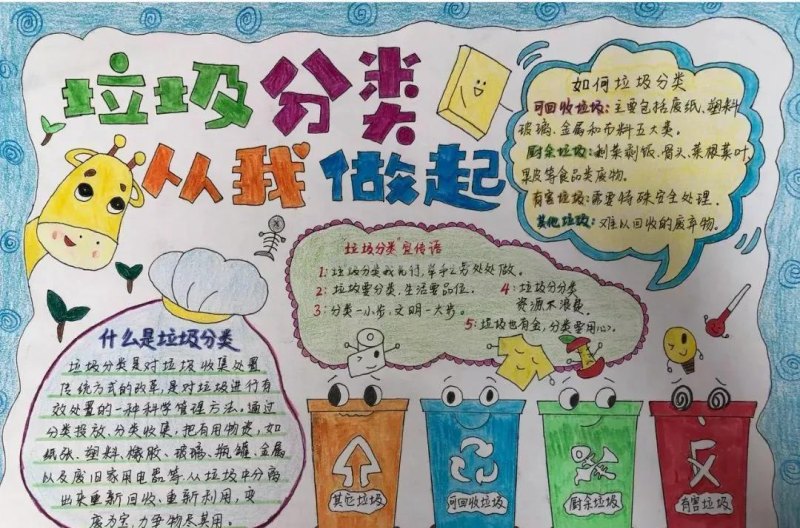 垃圾分类
从我做起
如何垃圾分类
可回收垃圾:主要包括废纸、塑料
玻璃、金属和布料五大类。
厨余垃圾:剩菜剩饭、骨头、菜根菜叶、
果皮等食品类废物。
有害垃圾:需要特殊安全处理。
其他垃圾:难以回收的废弃物。
垃圾分类"宣传语
1:垃圾分类我先行,举手之劳处处做。
2:垃圾要分类,生活要品位。
3:分类一小步,文明一大步。
4:垃圾分分类
资源不浪费。
5:垃圾也有金,分类要用心。
什么是垃圾分类
垃圾分类是对垃圾收集处置
传统方式的改革,是对垃圾进行有
效处置的一种科学管理方法,通过
分类投放、分类收集,把有用物资,如
纸张、塑料、橡胶、玻璃、瓶罐、金属
以及废旧家用电器等,从垃圾中分离
出来重新回收、重新利用,变
废为宝,力争物尽其用。
其它垃圾
可回收垃圾
厨余垃圾
有害垃圾